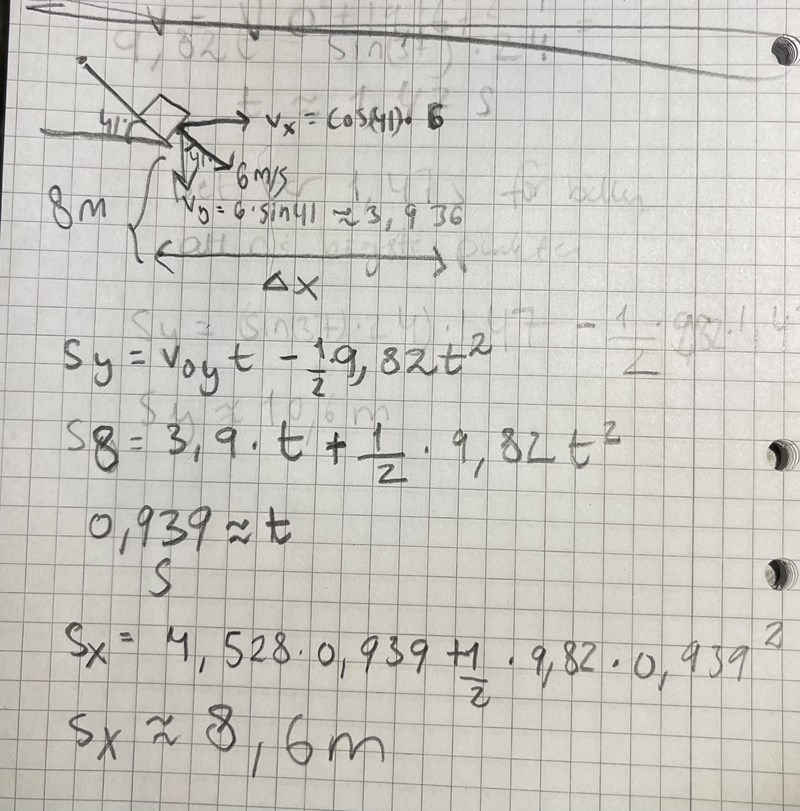 41°
vₓ = cos(41) · 6
41
6 m/s
8m
v₀ = 6 · sin 41 ≈ 3,936
Δx
Sy = v₀y t - 1/2 · 9,82t²
S8 = 3,9 · t + 1/2 · 9,82 t²
0,939 ≈ t
s
Sₓ = 4,528 · 0,939 + 1/2 · 9,82 · 0,939²
Sₓ ≈ 8,6m